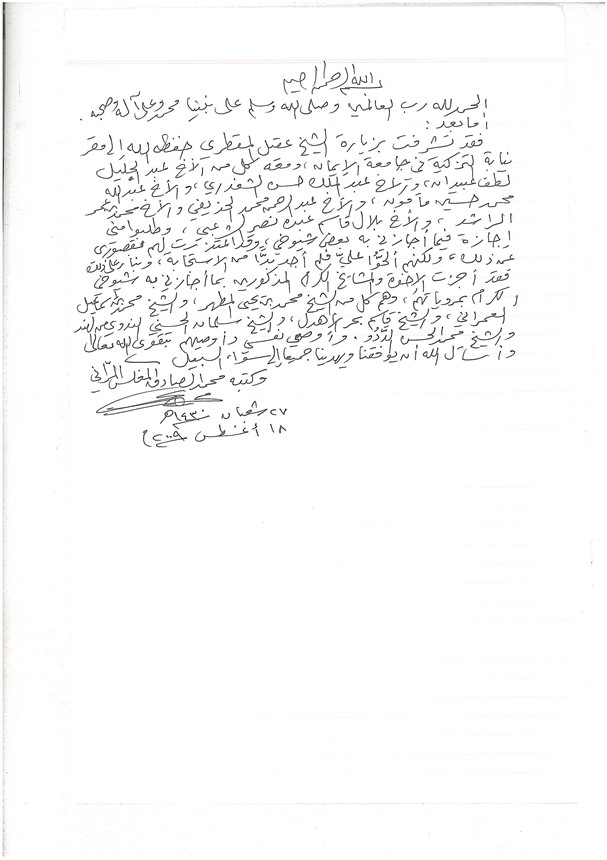 بسم الله الرحمن الرحيم
الحمد لله رب العالمين وصلى الله وسلم على نبينا محمد وعلى آله وصحبه.
أما بعد:
فقد تشرفت بزيارة الشيخ عقيل المقطري حفظه الله إلى مقر
نيابة التزكية في جامعة الإيمان، ومعه كل من الأخ عبد الجليل
لطف عبيدان، والأخ عبد الملك حسن الشغدري، والأخ عبد الله
محمد حسين مأمون، والأخ عبد الرحمن محمد الحذيفي والأخ محمد عمر
الراشد، والأخ بلال قاسم عبده نصر الشعبي، وطلبوا مني
إجازة فيما أجازني به بعض شيوخي، وقد اعتذرت لهم لقصوري
عن ذلك، ولكنهم ألحوا علي فلم أجد بدًّا من الاستجابة، وبناء على ذلك
فقد أجزت الأخوة والمشايخ الكرام المذكورين بما أجازني به شيوخي
الكرام بمروياتهم، وهم كل من الشيخ محمد بن يحيى المطهر، والشيخ محمد بن إسماعيل
العمراني، والشيخ قاسم بحر الأهدل، والشيخ سلمان الحسيني الندوي من الهند
والشيخ محمد الحسن الددو. وأوصي نفسي وأوصيهم بتقوى الله تعالى
وأسأل الله أن يوفقنا ويهدينا جميعًا إلى سواء السبيل
وكتبه محمد الصادق المغلس المراني
٢٧ شعبان ١٤٣٠هـ
١٨ أغسطس ٢٠٠٩م